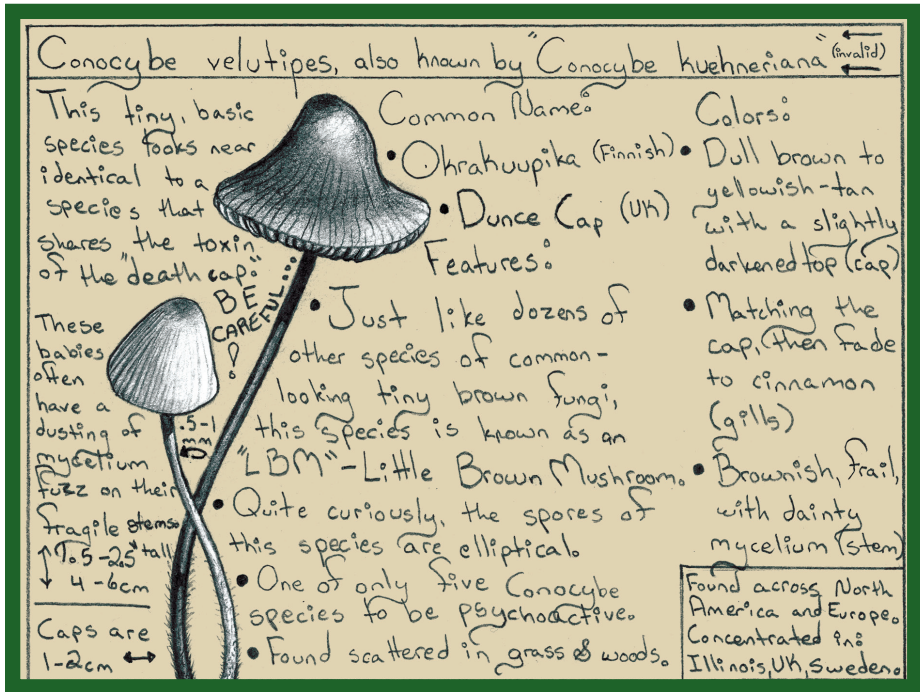 Conocybe velutipes, also known by "Conocybe kuehneriana" (invalid)
This tiny, basic
species looks near
identical to a
species that
shares the toxin
of the "death cap."
BE
CAREFUL...
!
These
babies
often
have a
dusting of
mycelium
fuzz on their
fragile stems.
1.5-2.5" tall
4-6cm
Caps are
1-2cm
.5-1
mm
Common Name:
• Okrakuupika (Finnish)
• Dunce Cap (UK)
Features:
• Just like dozens of
other species of common-
looking tiny brown fungi,
this species is known as an
"LBM"-Little Brown Mushroom.
• Quite curiously, the spores of
this species are elliptical.
• One of only five Conocybe
species to be psychoactive.
• Found scattered in grass & woods.
Colors:
• Dull brown to
yellowish-tan
with a slightly
darkened top (cap)
• Matching the
cap, then fade
to cinnamon
(gills)
• Brownish, frail,
with dainty
mycelium (stem)
Found across North
America and Europe.
Concentrated in:
Illinois, UK, Sweden.